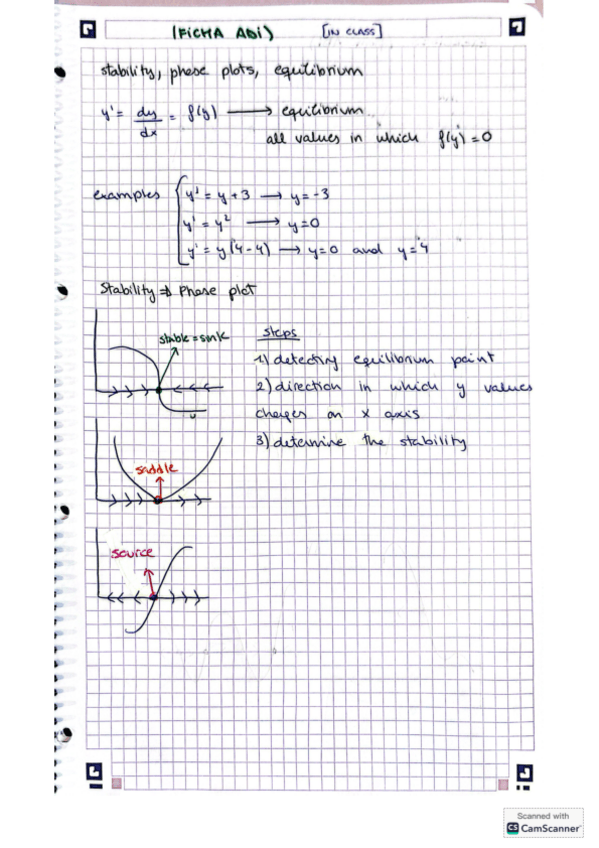 (FICHA ADI) [IN CLASS]
stability, phase plots, equilibrium
y' = dy/dx = f(y) ⟶ equilibrium
all values in which f(y) = 0
examples
y' = y + 3 → y = -3
y' = y² → y = 0
y' = y(4-4) → y = 0 and y = 4
Stability → Phase plot
stable = sink
Steps
1) detecting equilibrium point
2) direction in which y values
changes on x axis
3) determine the stability
saddle
source
Scanned with
CS CamScanner